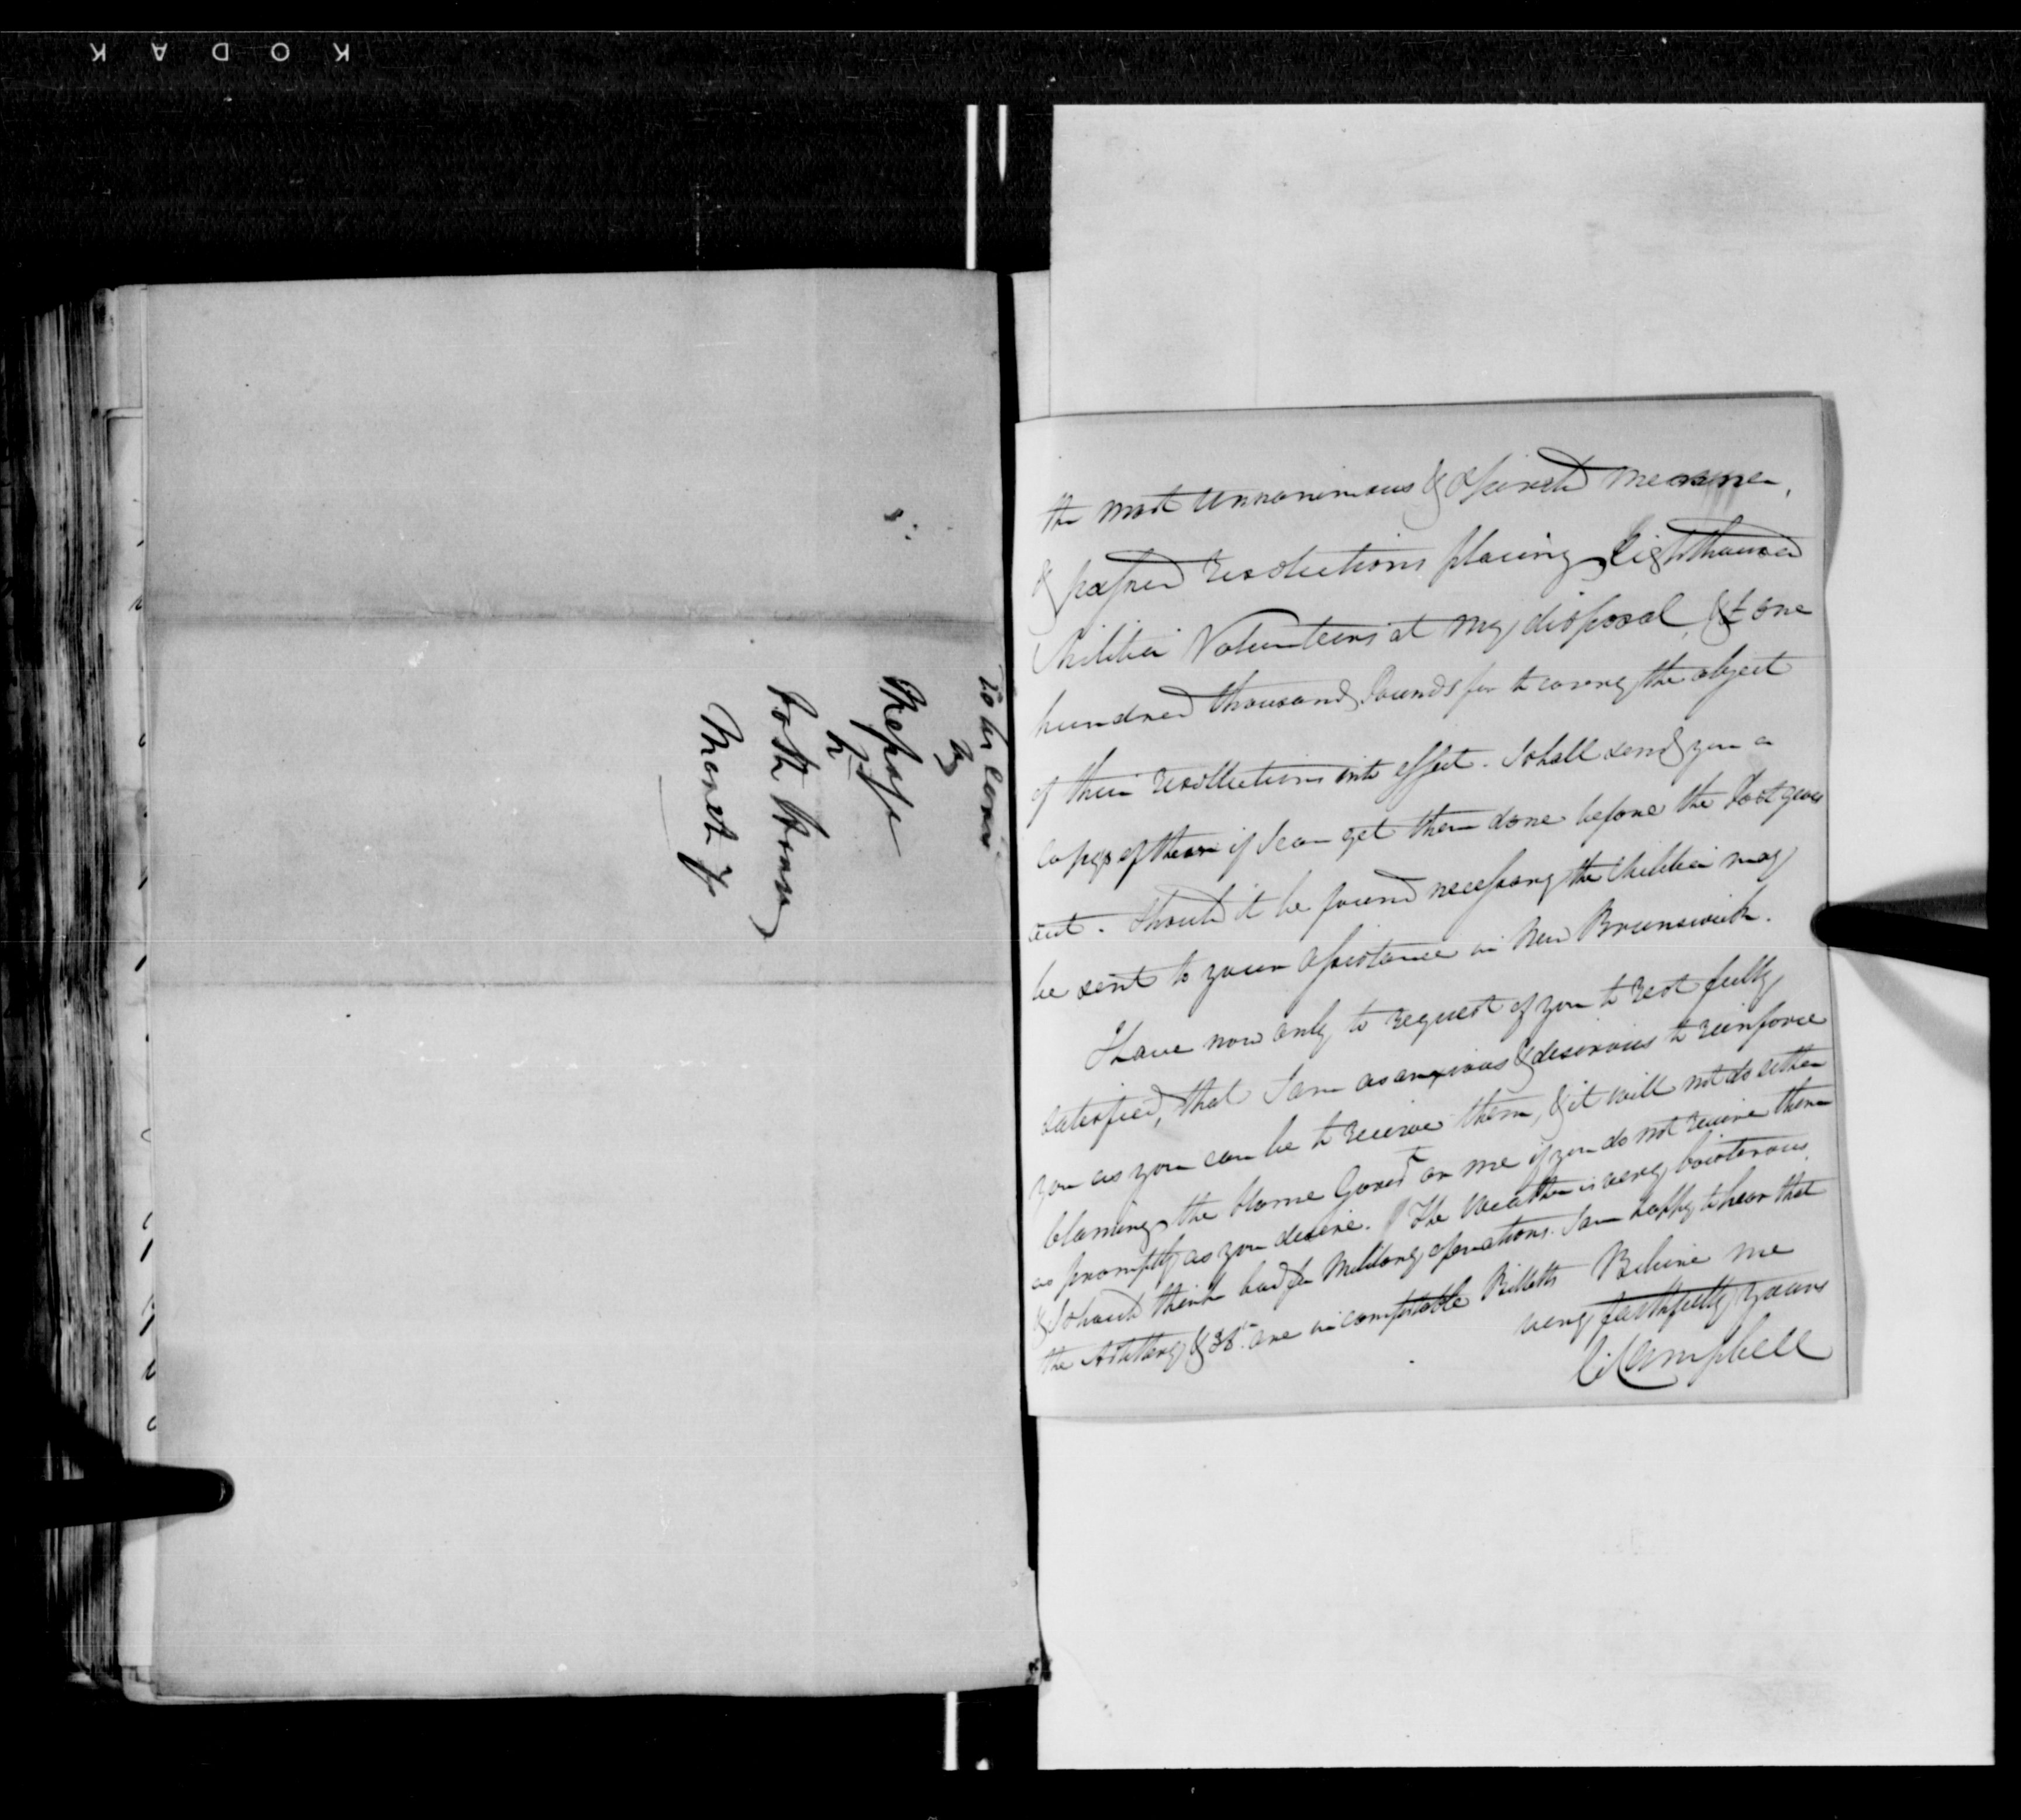 KODAK
to be Copied
by
Mepisse
for
Both Houses
Monet Jr
the most Unnanimous & Spirited manner,
& passed resolutions placing Eightthousand
Militia Volunteers at my disposal, & one
hundred thousand Pounds for to carry the object
of their resollutions into effect. I shall send you a
copy of them if I can get them done before the Post goes
out. Should it be found necessary the Militia may
be sent to your assistance in New Brunswick.
I have now only to request of you to rest fully
satisfied, that I am as anxious & desirous to reinforce
you as you can be to receive them, & it will not do either
blaming the Home Govert or me if you do not receive them
as promptly as you desire. The Weather is very boisterous,
& I should think bad for Military operations. I am happy to hear that
the Artillery & 36th are in comfortable Billetts Believe me
very faithfully yours
C: Campbell